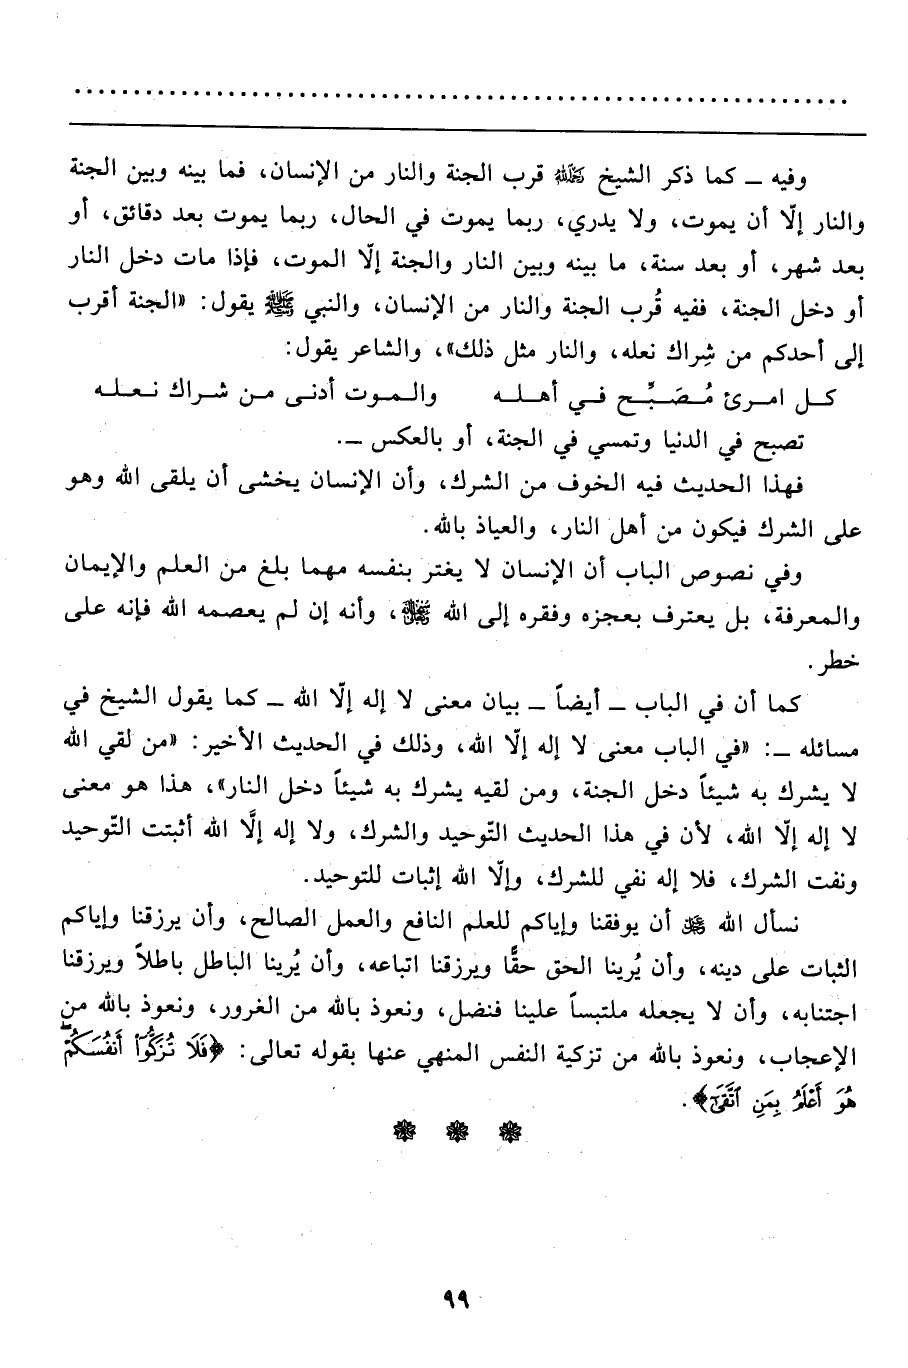 وفيه ــ كما ذكر الشيخ ﵀ قرب الجنة والنار من الإنسان، فما بينه وبين الجنة
والنار إلَّا أن يموت، ولا يدري، ربما يموت في الحال، ربما يموت بعد دقائق، أو
بعد شهر، أو بعد سنة، ما بينه وبين النار والجنة إلَّا الموت، فإذا مات دخل النار
أو دخل الجنة، ففيه قُرب الجنة والنار من الإنسان، والنبي ﷺ يقول: «الجنة أقرب
إلى أحدكم من شِراك نعله، والنار مثل ذلك»، والشاعر يقول:
كـل امـرئ مُـصَـبَّـح فـي أهـلـه والـمـوت أدنـى مـن شـراك نـعـلـه
تصبح في الدنيا وتمسي في الجنة، أو بالعكس ــ.
فهذا الحديث فيه الخوف من الشرك، وأن الإنسان يخشى أن يلقى الله وهو
على الشرك فيكون من أهل النار، والعياذ بالله.
وفي نصوص الباب أن الإنسان لا يغتر بنفسه مهما بلغ من العلم والإيمان
والمعرفة، بل يعترف بعجزه وفقره إلى الله ﷿، وأنه إن لم يعصمه الله فإنه على
خطر.
كما أن في الباب ــ أيضاً ــ بيان معنى لا إله إلَّا الله ــ كما يقول الشيخ في
مسائله ــ: «في الباب معنى لا إله إلَّا الله، وذلك في الحديث الأخير: «من لقي الله
لا يشرك به شيئاً دخل الجنة، ومن لقيه يشرك به شيئاً دخل النار»، هذا هو معنى
لا إله إلَّا الله، لأن في هذا الحديث التّوحيد والشرك، ولا إله إلَّا الله أثبتت التّوحيد
ونفت الشرك، فلا إله نفي للشرك، وإلَّا الله إثبات للتوحيد.
نسأل الله ﷻ أن يوفقنا وإياكم للعلم النافع والعمل الصالح، وأن يرزقنا وإياكم
الثبات على دينه، وأن يُرينا الحق حقًّا ويرزقنا اتباعه، وأن يُرينا الباطل باطلاً ويرزقنا
اجتنابه، وأن لا يجعله ملتبساً علينا فنضل، ونعوذ بالله من الغرور، ونعوذ بالله من
الإعجاب، ونعوذ بالله من تزكية النفس المنهي عنها بقوله تعالى: ﴿فَلَا تُزَكُّوٓا۟ أَنفُسَكُمْ ۖ
هُوَ أَعْلَمُ بِمَنِ ٱتَّقَىٰٓ﴾.
٩٩